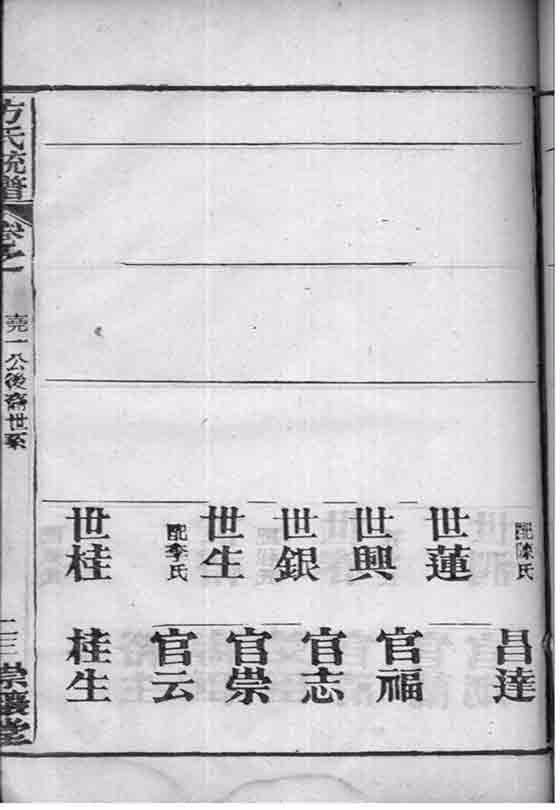 配陳氏
昌達
世蓮
官福
世興
官志
世銀
官崇
世生
配李氏
官云
世桂
桂生
方氏統譜
卷之一
堯一公後裔世系
二三
崇讓堂